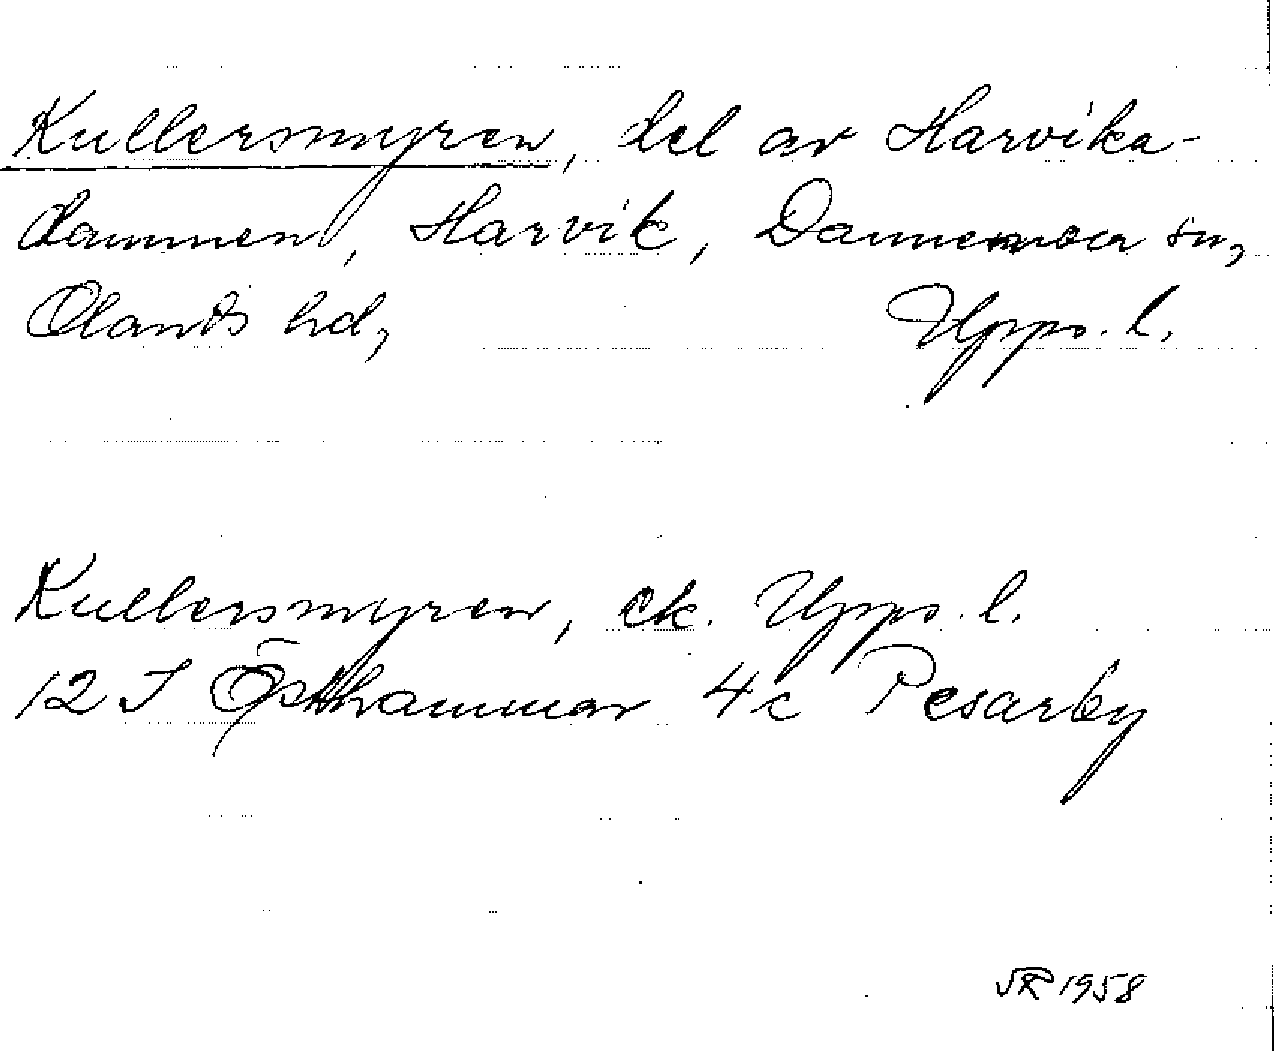 Kullersmyren, del av Harvika-
dammen, Harvik, Dannemora sn,
Olands hd, Upps. l.
Kullersmyren, ek. Upps. l.
12 I Östhammar 4c Pesarby
1958